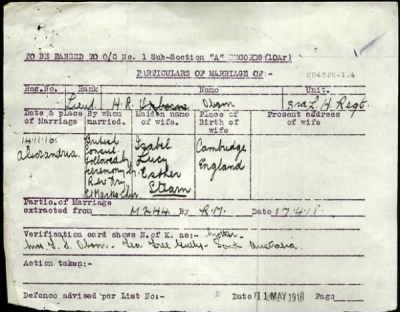 TO BE PASSED TO O/C No. 1 Sub-Section "A" RECORDS (1DAF)
PARTICULARS OF MARRIAGE OF:-
Reg.No. Rank Name Unit.
Lieut H.R. Osborne Obom 3rd L H Regt.
Date & place of Marriage By whom married. Maiden name of wife. Place of Birth of wife Present address of wife
Alexandria. British Consul followed by ceremony by Rev Fry St Marks Ch. Isabel Lucy Esther Stearn Cambridge England
Partic. of Marriage extracted from M 244 By R.M. Date 17.4.18.
Verification card shows N. of K. as:- Mother.
Mrs Tea Tree Gully - South Australia
Action taken:-
Defence advised per List No:- Date 11 MAY 1918 Page